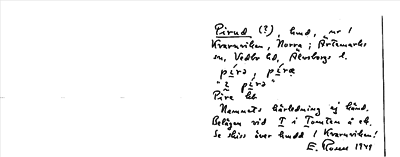 Pirud (?), hud, nr 1
Kvarnviken, Norra; Ärtemarks
sn, Vedbo hd, Älvsborgs l.
pírə, píræ
"i pírə"
Pire hb
Namnets härledning ej känd.
Belägen vid I i Tomten å ek.
Se skiss över hudd 1 Kvarnviken!
E. Rosell 1949